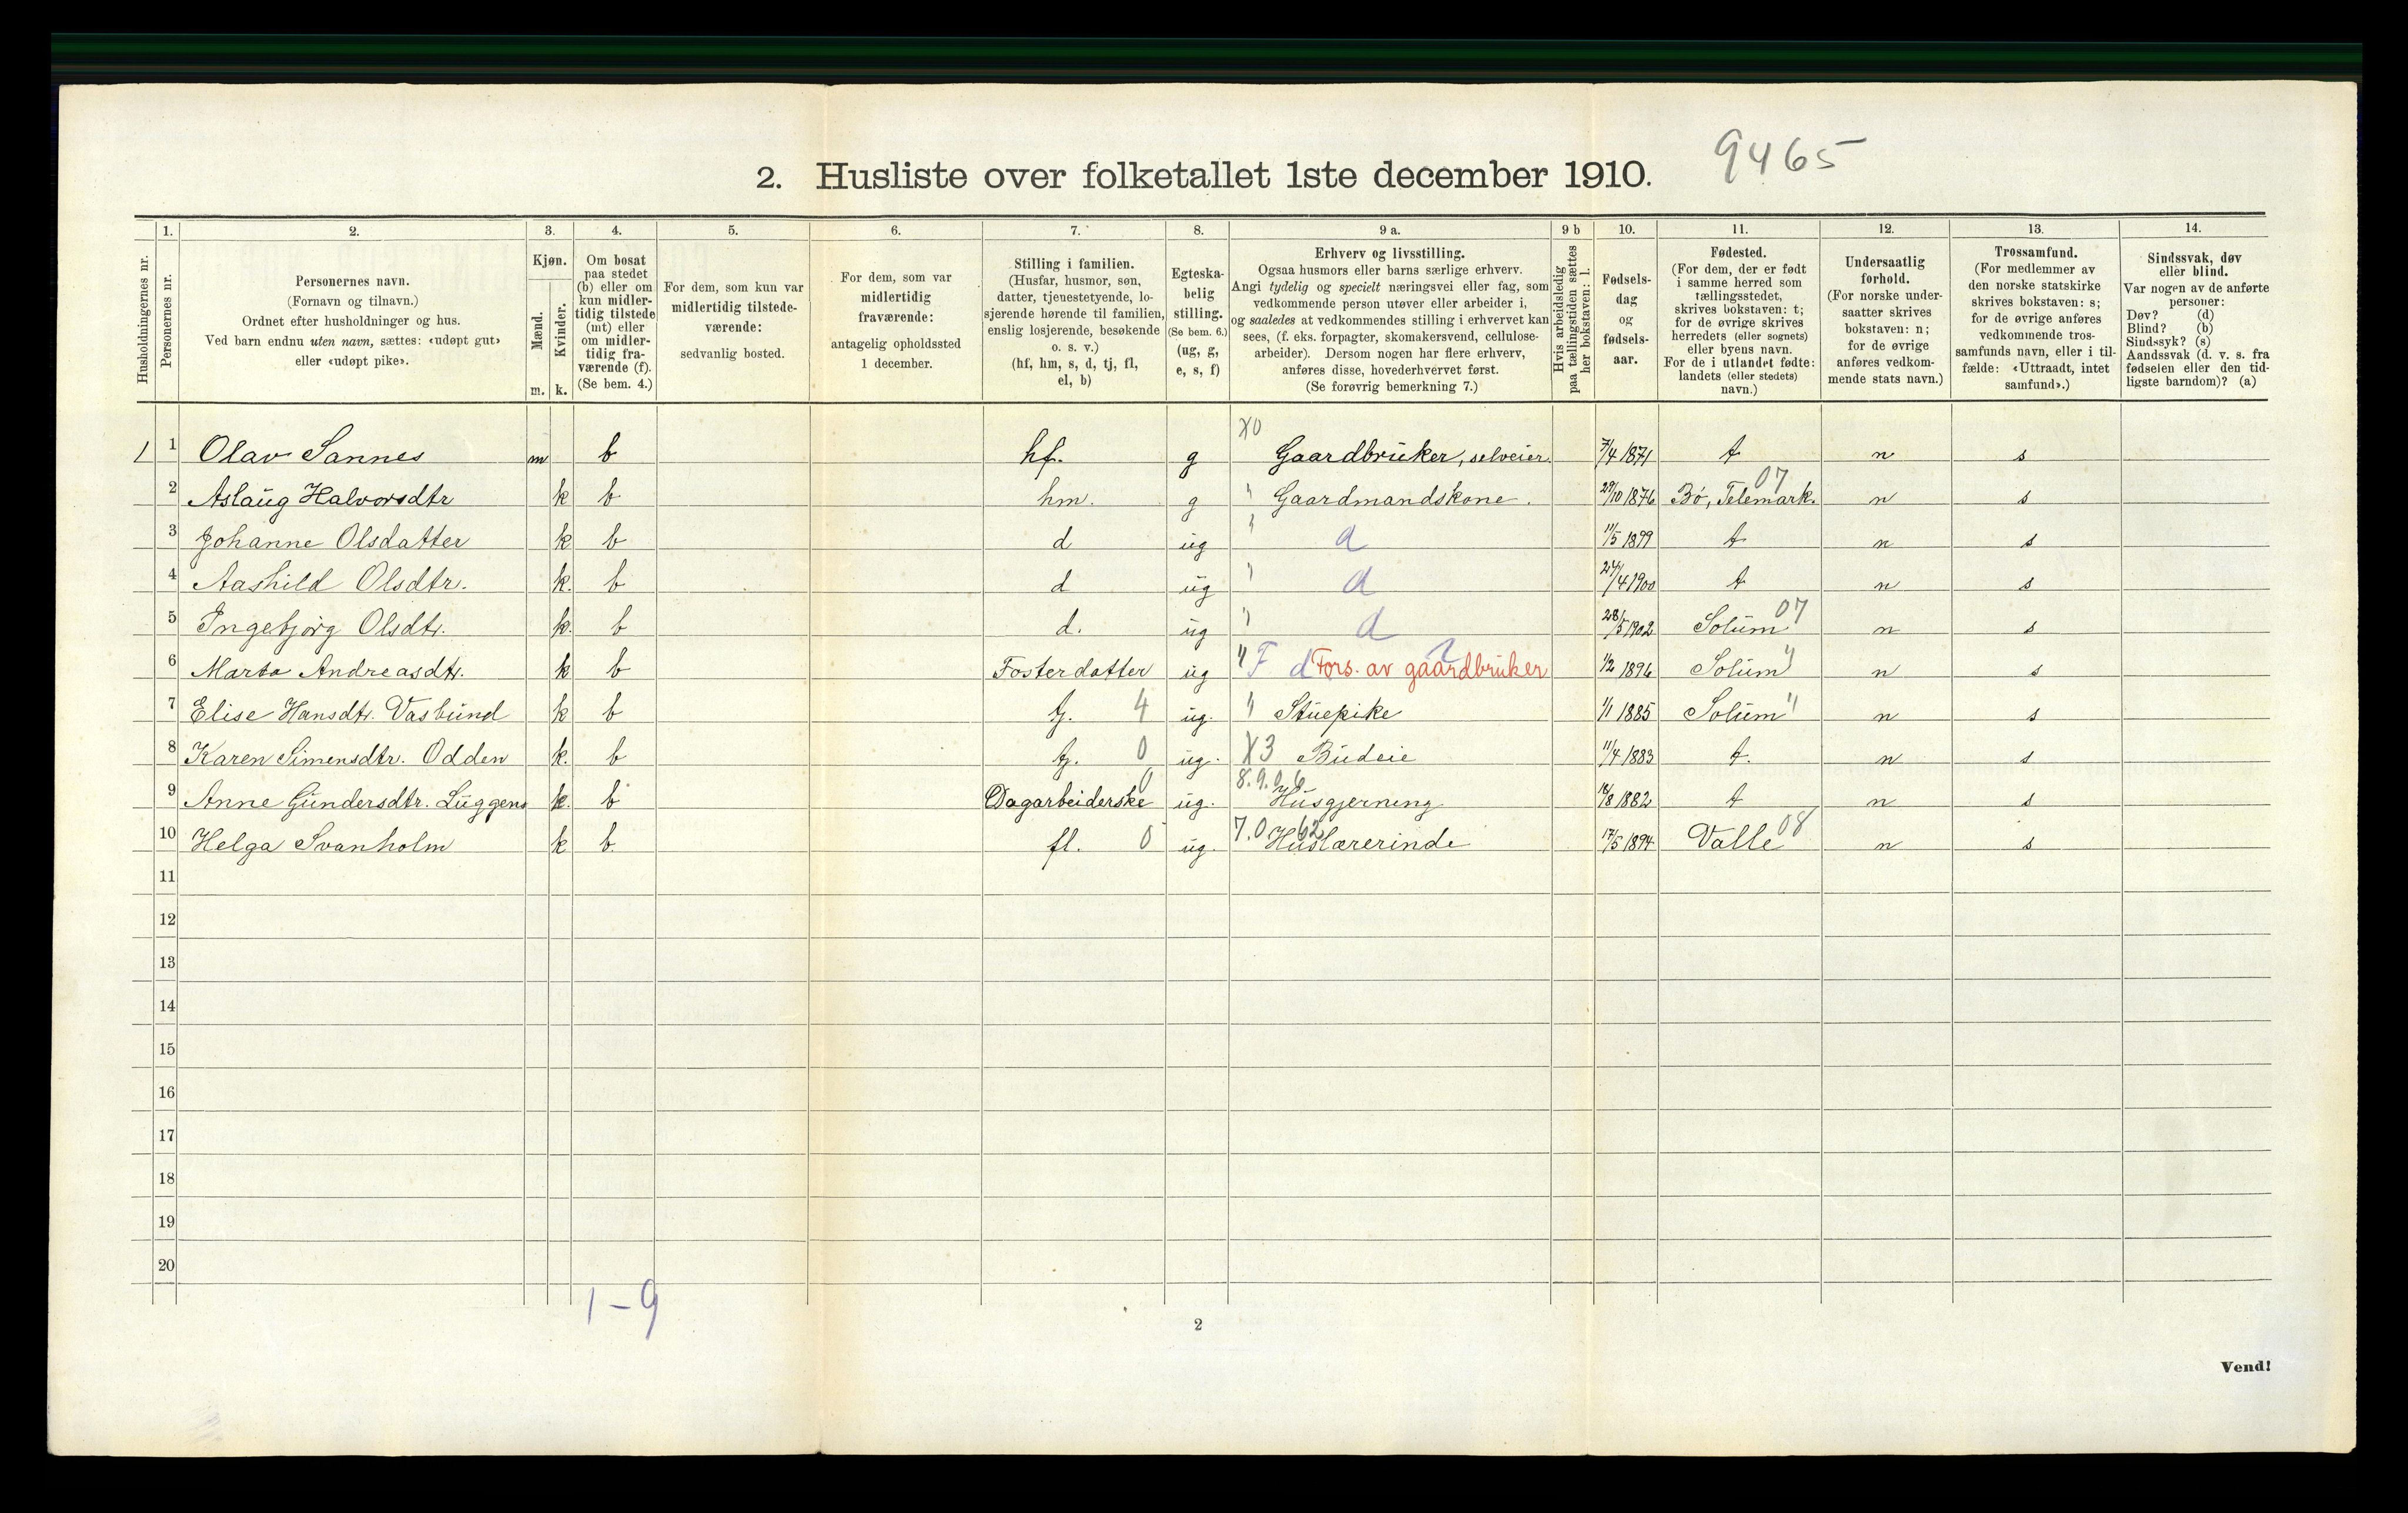 9465
2. Husliste over folketallet 1ste december 1910.
Husholdningernes nr.
1. Personernes nr.
2. Personernes navn.
(Fornavn og tilnavn.)
Ordnet efter husholdninger og hus.
Ved barn endnu uten navn, sættes: «udøpt gut»
eller «udøpt pike».
3. Kjøn.
Mænd. Kvinder.
m. k.
4. Om bosat
paa stedet
(b) eller om
kun midler-
tidig tilstede
(mt) eller
om midler-
tidig fra-
værende (f).
(Se bem. 4.)
5. For dem, som kun var
midlertidig tilstede-
værende:
sedvanlig bosted.
6. For dem, som var
midlertidig
fraværende:
antagelig opholdssted
1 december.
7. Stilling i familien.
(Husfar, husmor, søn,
datter, tjenestetyende, lo-
sjerende hørende til familien,
enslig losjerende, besøkende
o. s. v.)
(hf, hm, s, d, tj, fl,
el, b)
8. Egteska-
belig
stilling.
(Se bem. 6.)
(ug, g,
e, s, f)
9 a. Erhverv og livsstilling.
Ogsaa husmors eller barns særlige erhverv.
Angi tydelig og specielt næringsvei eller fag, som
vedkommende person utøver eller arbeider i,
og saaledes at vedkommendes stilling i erhvervet kan
sees, (f. eks. forpagter, skomakersvend, cellulose-
arbeider). Dersom nogen har flere erhverv,
anføres disse, hovederhvervet først.
(Se forøvrig bemerkning 7.)
9 b Hvis arbeidsledig
paa tællingstiden sættes
her bokstaven: l.
10. Fødsels-
dag
og
fødsels-
aar.
11. Fødested.
(For dem, der er født
i samme herred som
tællingsstedet,
skrives bokstaven: t;
for de øvrige skrives
herredets (eller sognets)
eller byens navn.
For de i utlandet fødte:
landets (eller stedets)
navn.)
12. Undersaatlig
forhold.
(For norske under-
saatter skrives
bokstaven: n;
for de øvrige
anføres vedkom-
mende stats navn.)
13. Trossamfund.
(For medlemmer av
den norske statskirke
skrives bokstaven: s;
for de øvrige anføres
vedkommende tros-
samfunds navn, eller i til-
fælde: «Uttraadt, intet
samfund».)
14. Sindssvak, døv
eller blind.
Var nogen av de anførte
personer:
Døv? (d)
Blind? (b)
Sindssyk? (s)
Aandssvak (d. v. s. fra
fødselen eller den tid-
ligste barndom)? (a)
X0
1 1 Olav Sannes m b hf. g Gaardbruker, selveier. 7/4 1871 t n s
2 Aslaug Halvorsdtr k b hm. g " Gaardmandskone. 29/10 1876 Bø, Telemark. 07 n s
3 Johanne Olsdatter k b d ug " d 11/5 1899 t n s
4 Aashild Olsdtr. k. b d ug " d 24/4 1900 t n s
5 Ingebjørg Olsdtr. k. b d. ug " d 28/5 1902 Solum 07 n s
6 Marta Andreasdtr. k b Fosterdatter ug " F d Fors. av gaardbruker 1/2 1896 Solum " n s
7 Elise Hansdtr. Vasbund k b tj. 4 ug. " Stuepike 1/1 1885 Solum " n s
8 Karen Simensdtr. Odden k. b tj. 0 ug. X3 Budeie 11/4 1883 t. n s
9 Anne Gundersdtr. Luggens k. b Dagarbeiderske 0 ug. 8.9.0.6 Husgjerning 16/8 1882 t n s
10 Helga Svanholm k b. fl. 0 ug. 7.0 62 Huslærerinde 17/5 1894 Valle 08 n s
11
12
13
14
15
16
17
18
19
20
1-9
2
Vend!